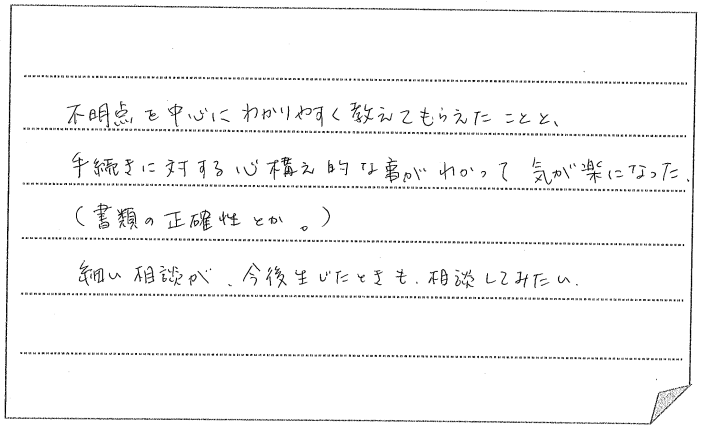 不明点を中心にわかりやすく教えてもらえたことと、
手続きに対する心構え的な事がわかって気が楽になった.
(書類の正確性とか。)
細い相談が、今後生じたときも、相談してみたい.